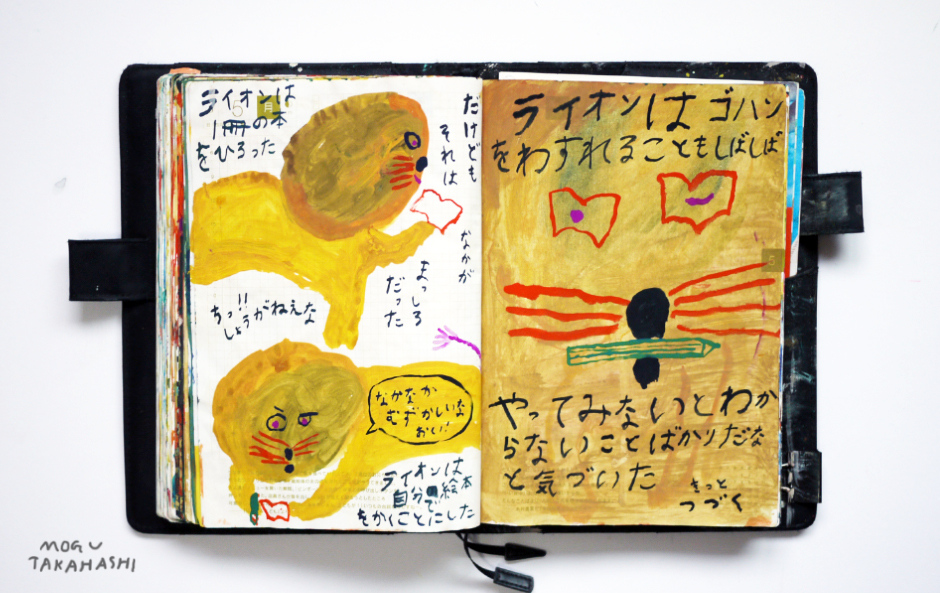 ライオンは
1冊の本
をひろった
だけども
それは
なかが
まっしろ
だった
ちっ!!
しょうがねえな
なかなか
むずかしいなよ
おい!
ライオンは
自分で絵本
をかくことにした
ライオンは ゴハン
をわすれることもしばしば
5
やってみないとわか
らないことばかりだな
と気づいた
きっと
つづく
MOGU
TAKAHASHI